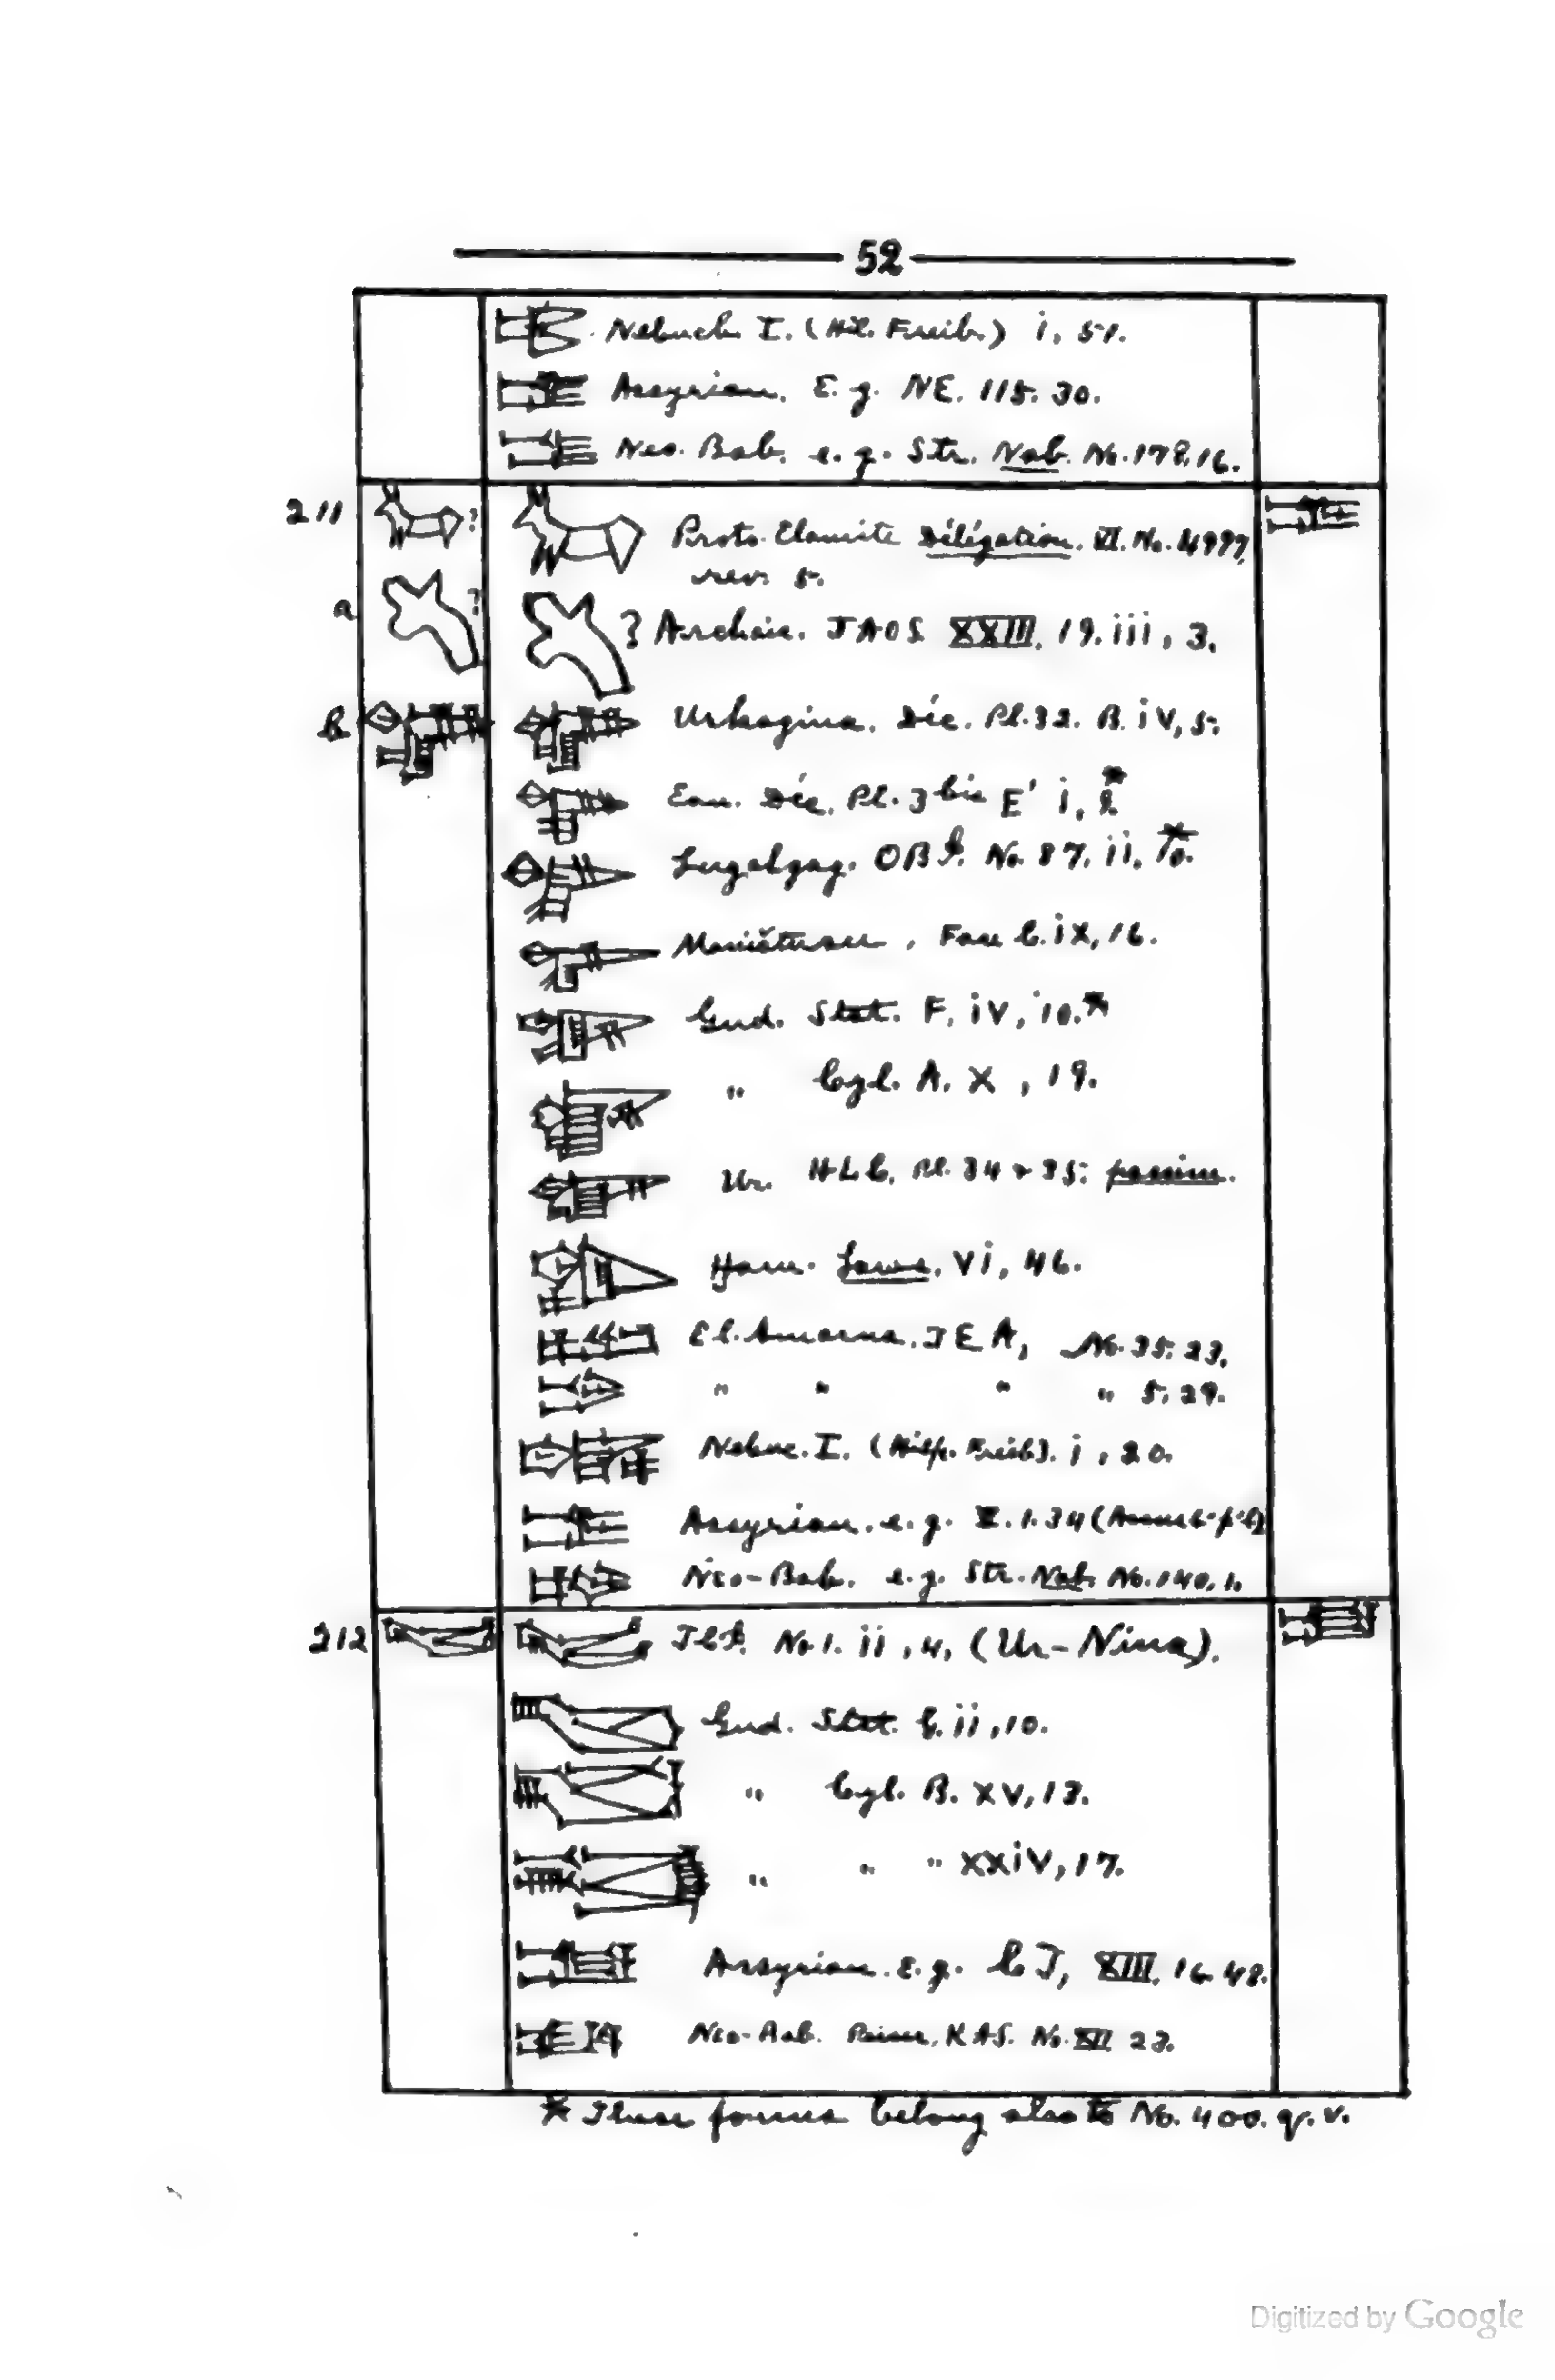 52
Nebuch I. (Hil. Freib.) i, 51.
Assyrian. E. g. NE. 115. 30.
Neo. Bab. e. g. Str. Nab. No. 178, 16.
211 ? Proto. Elamite Délégation. VI. No. 4997,
rev. 5.
a ? ? Archaic. JAOS XXIII. 19. iii, 3.
b Urkagina. Déc. Pl. 32. B. iv, 5.
Ean. Déc. Pl. 3 bis E' i, 2*
Lugalzag. OBI. No. 87. ii, 10.*
Maništusu, Face C. ix, 16.
Gud. Stat. F. iv, 10.*
" Cyl. A. X, 19.
Ur. HLC. Pl. 34 & 35. passim.
Ham. Laws. vi, 46.
El. Amarna. JEA, No. 35. 23.
" " " " 5. 29.
Nebuc. I. (Hilp. Freib). i, 20.
Assyrian. e. g. 1. 34
Neo-Bab. e. g. Str. Nab. No. 140, 1.
212 No 1. ii, 4, (Ur-Nina).
Gud. Stat. C. ii, 10.
" Cyl. B. XV, 13.
" " " xxiv, 17.
Assyrian. E. g. CT, XIII. 16. 48.
Neo-Bab. Peiser, KAS. No. XII 23.
* These forms belong also to No. 400. q. v.
Digitized by Google